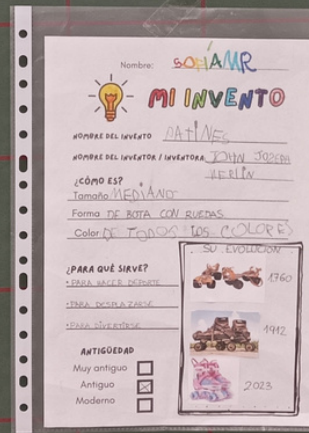 Nombre: SOFÍA MR
MI INVENTO
NOMBRE DEL INVENTO PATINES
NOMBRE DEL INVENTOR / INVENTORA JOHN JOZEPH
MERLIN
¿CÓMO ES?
Tamaño MEDIANO
Forma DE BOTA CON RUEDAS
Color DE TODOS LOS COLORES
SU EVOLUCIÓN
1760
1912
2023
¿PARA QUÉ SIRVE?
• PARA HACER DEPORTE
• PARA DESPLAZARSE
• PARA DIVERTIRSE
ANTIGÜEDAD
Muy antiguo
Antiguo
Moderno